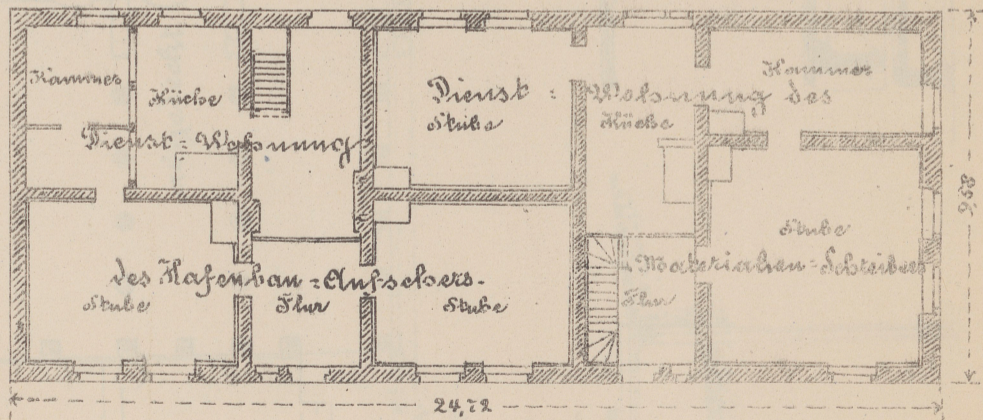 Kammer
Küche
Dienst-Wohnung
des Hafenbau-Aufsehers.
Stube
Flur
Stube
Dienst-Wohnung des
Stube
Küche
Kammer
Stube
Materialien-Schreibers
Flur
24,72